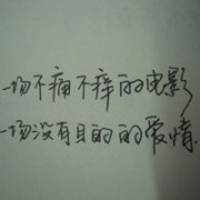 一场不痛不痒的电影
一场没有目的的爱情.